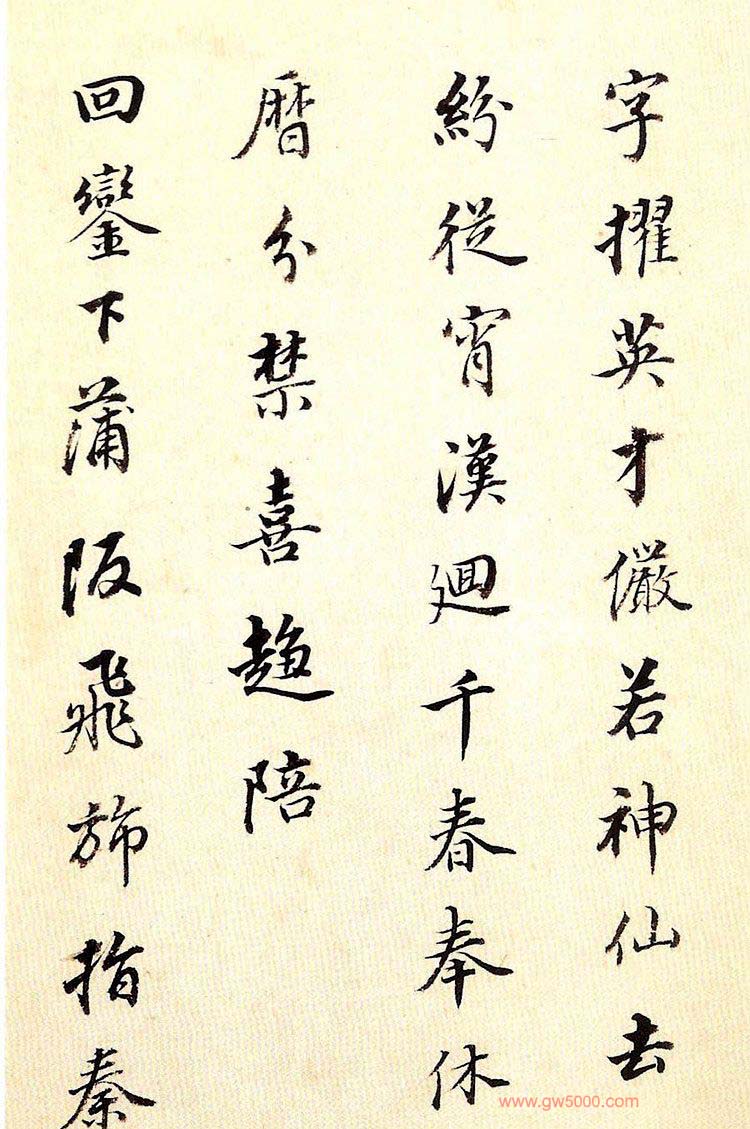 字擢英才儼若神仙去
紛從宵漢廻千春奉休
曆分禁喜趍陪
回鑾下蒲阪飛斾指秦
www.gw5000.com